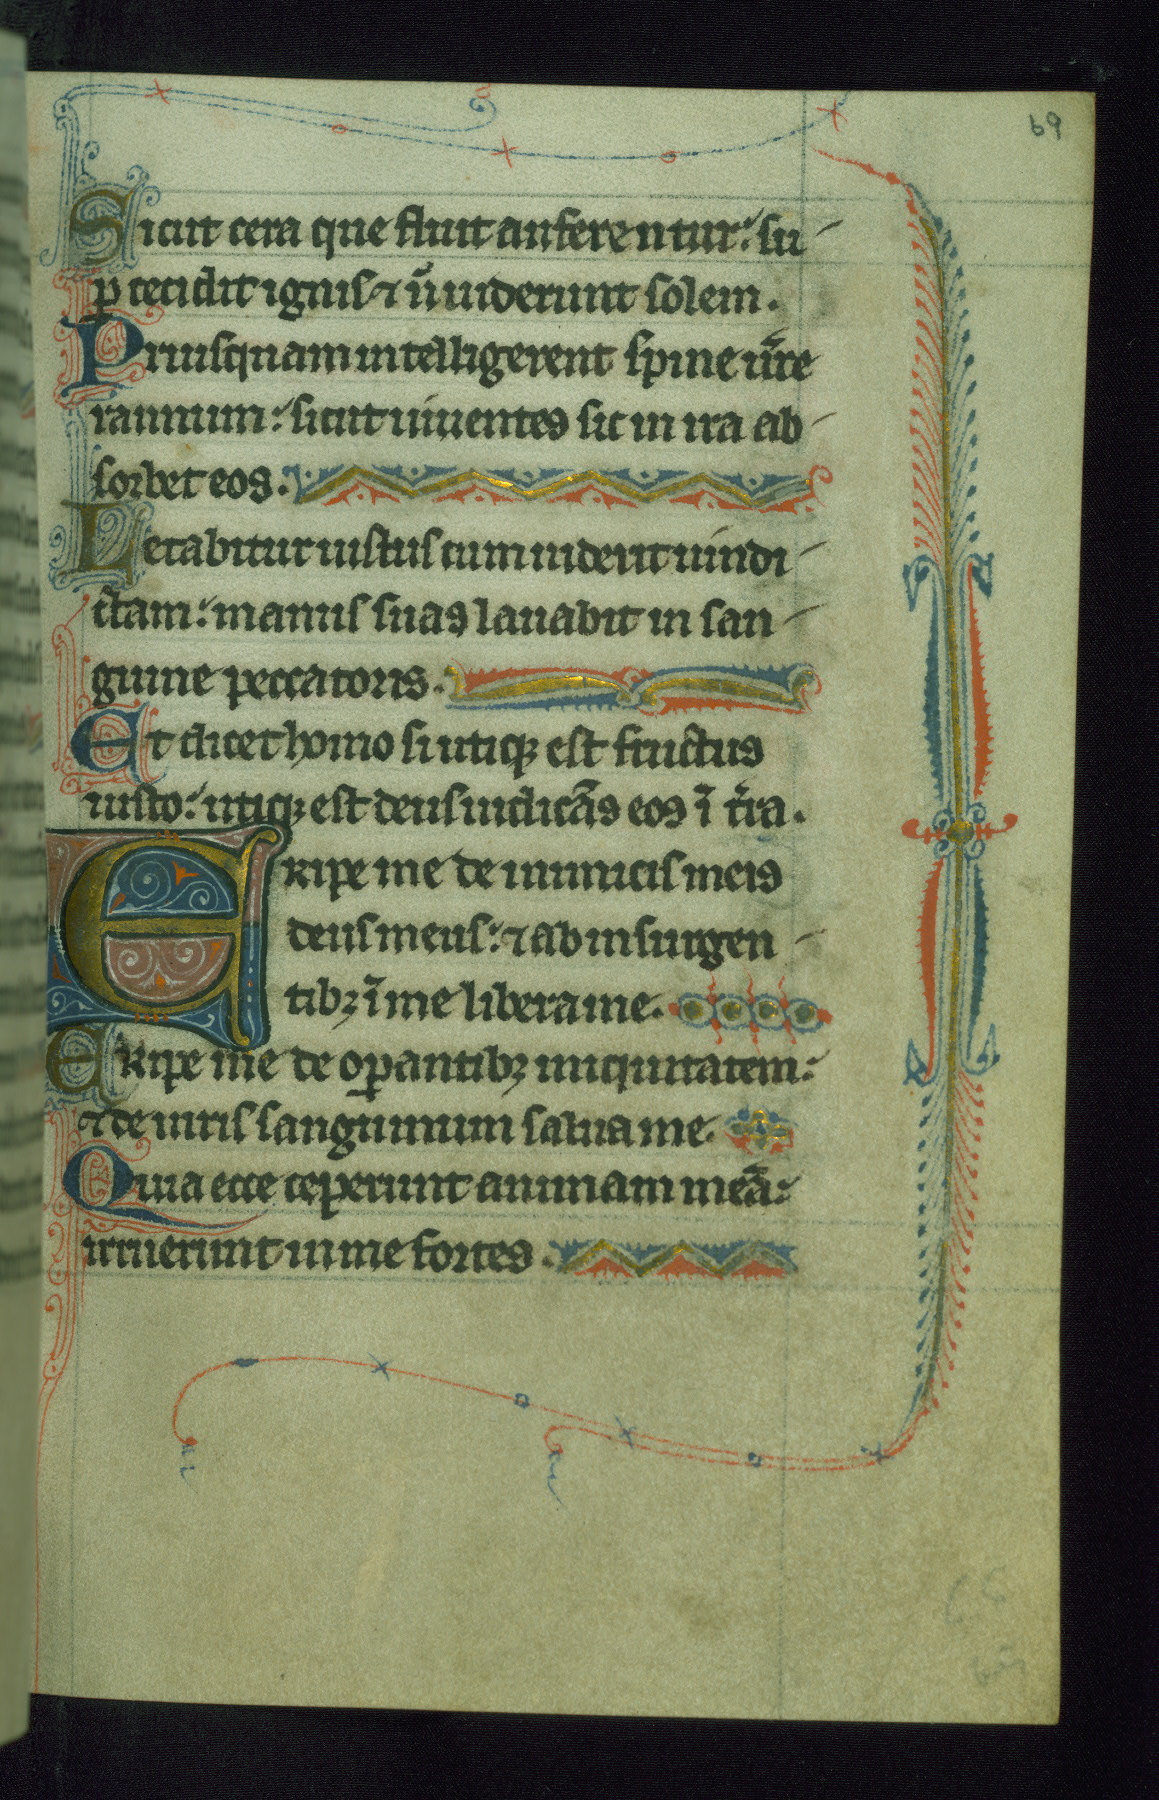 69
Sicut cera que fluit auferentur: su
ꝑ cecidit ignis ⁊ ñ uiderunt solem.
Priusquam intelligerent spine ur̃e
rannum: sicut uiuentes sic in ira ab
sorbet eos.
Letabitur iustus cum uiderit uindi
ctam: manus suas lauabit in san
guine peccatoris.
Et dicet homo si utiqꝫ est fructus
iusto: utiqꝫ est deus iudicãs eos ĩ tr̃ra.
Eripe me de inimicis meis
deus meus: ⁊ ab insurgen
tibꝫ ĩ me libera me.
Eripe me de oꝑantibꝫ iniquitatem:
⁊ de uiris sanguinum salua me.
Quia ecce ceperunt animam meã:
irruerunt in me fortes.